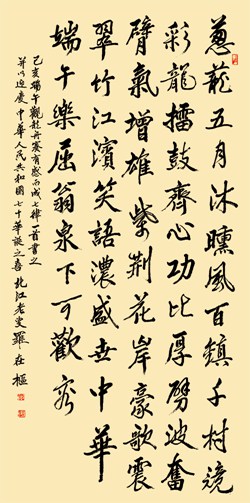 蔥蘢五月沐曛風百鎮千村競
彩龍擂鼓齊心功比厚劈波奮
臂氣增雄紫荊花岸豪歌震
翠竹江濱笑語濃盛世中華
端午樂屈翁泉下可歡容
己亥端午觀龍舟賽有感而成七律一首書之
并以迎慶中華人民共和國七十華誕之喜 北江老叟羅在樞